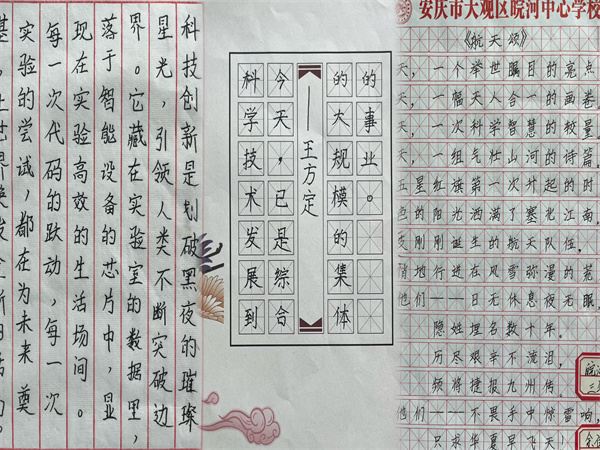 科技创新是划破黑夜的璀璨
星光，引领人类不断突破边
界。它藏在实验室的数据里，
落于智能设备的芯片中，显
现在实验高效的生活场间。
每一次代码的跃动，每一次
实验的尝试，都在为未来奠
科学技术发展到
今天，已是综合
——王方定
的大规模的集体
的事业。
安庆市大观区皖河中心学校
《航天颂》
天，一个举世瞩目的亮点
天，一幅天人合一的画卷
天，一次科学智慧的较量
天，一组气壮山河的诗篇
五星红旗第一次升起的时
的阳光洒满了塞北江南
刚刚诞生的航天队伍
地行进在风雪弥漫的荒
他们——日无休息夜无眠
隐姓埋名数十年。
历尽艰辛不流泪，
须将捷报九州传。
他们——不畏手中惊雷响，
只求华夏早飞天！